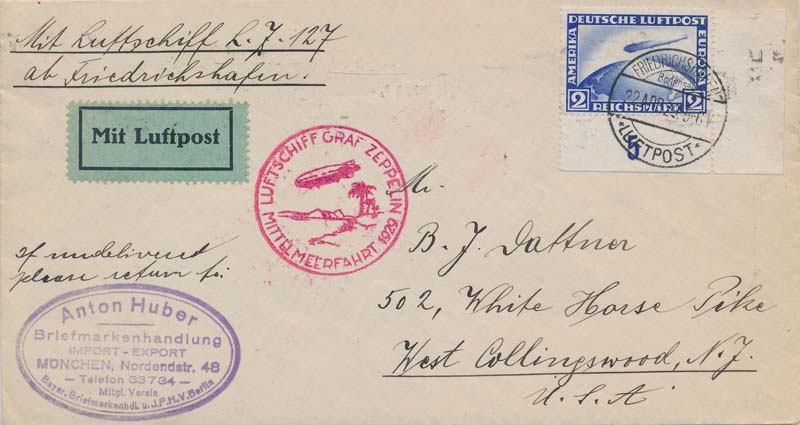 Mit Luftschiff L. Z. 127
ab Friedrichshafen.
Mit Luftpost
DEUTSCHE LUFTPOST
AMERIKA
EUROPA
2 REICHSMARK 2
FRIEDRICHSHAFEN
LUFTPOST
5
LUFTSCHIFF GRAF ZEPPELIN
MITTELMEERFAHRT 1929
Mr.
B. J. Dattner
502, White Horse Pike
West Collingswood, N. J.
U. S. A
If undelivered
please return to:
Anton Huber
Briefmarkenhandlung
IMPORT - EXPORT
MÜNCHEN, Nordendstr. 48
— Telefon 33734 —
Mitgl. Verein
Bayer. Briefmarkenhdl. u. J.P.H.V. Berlin